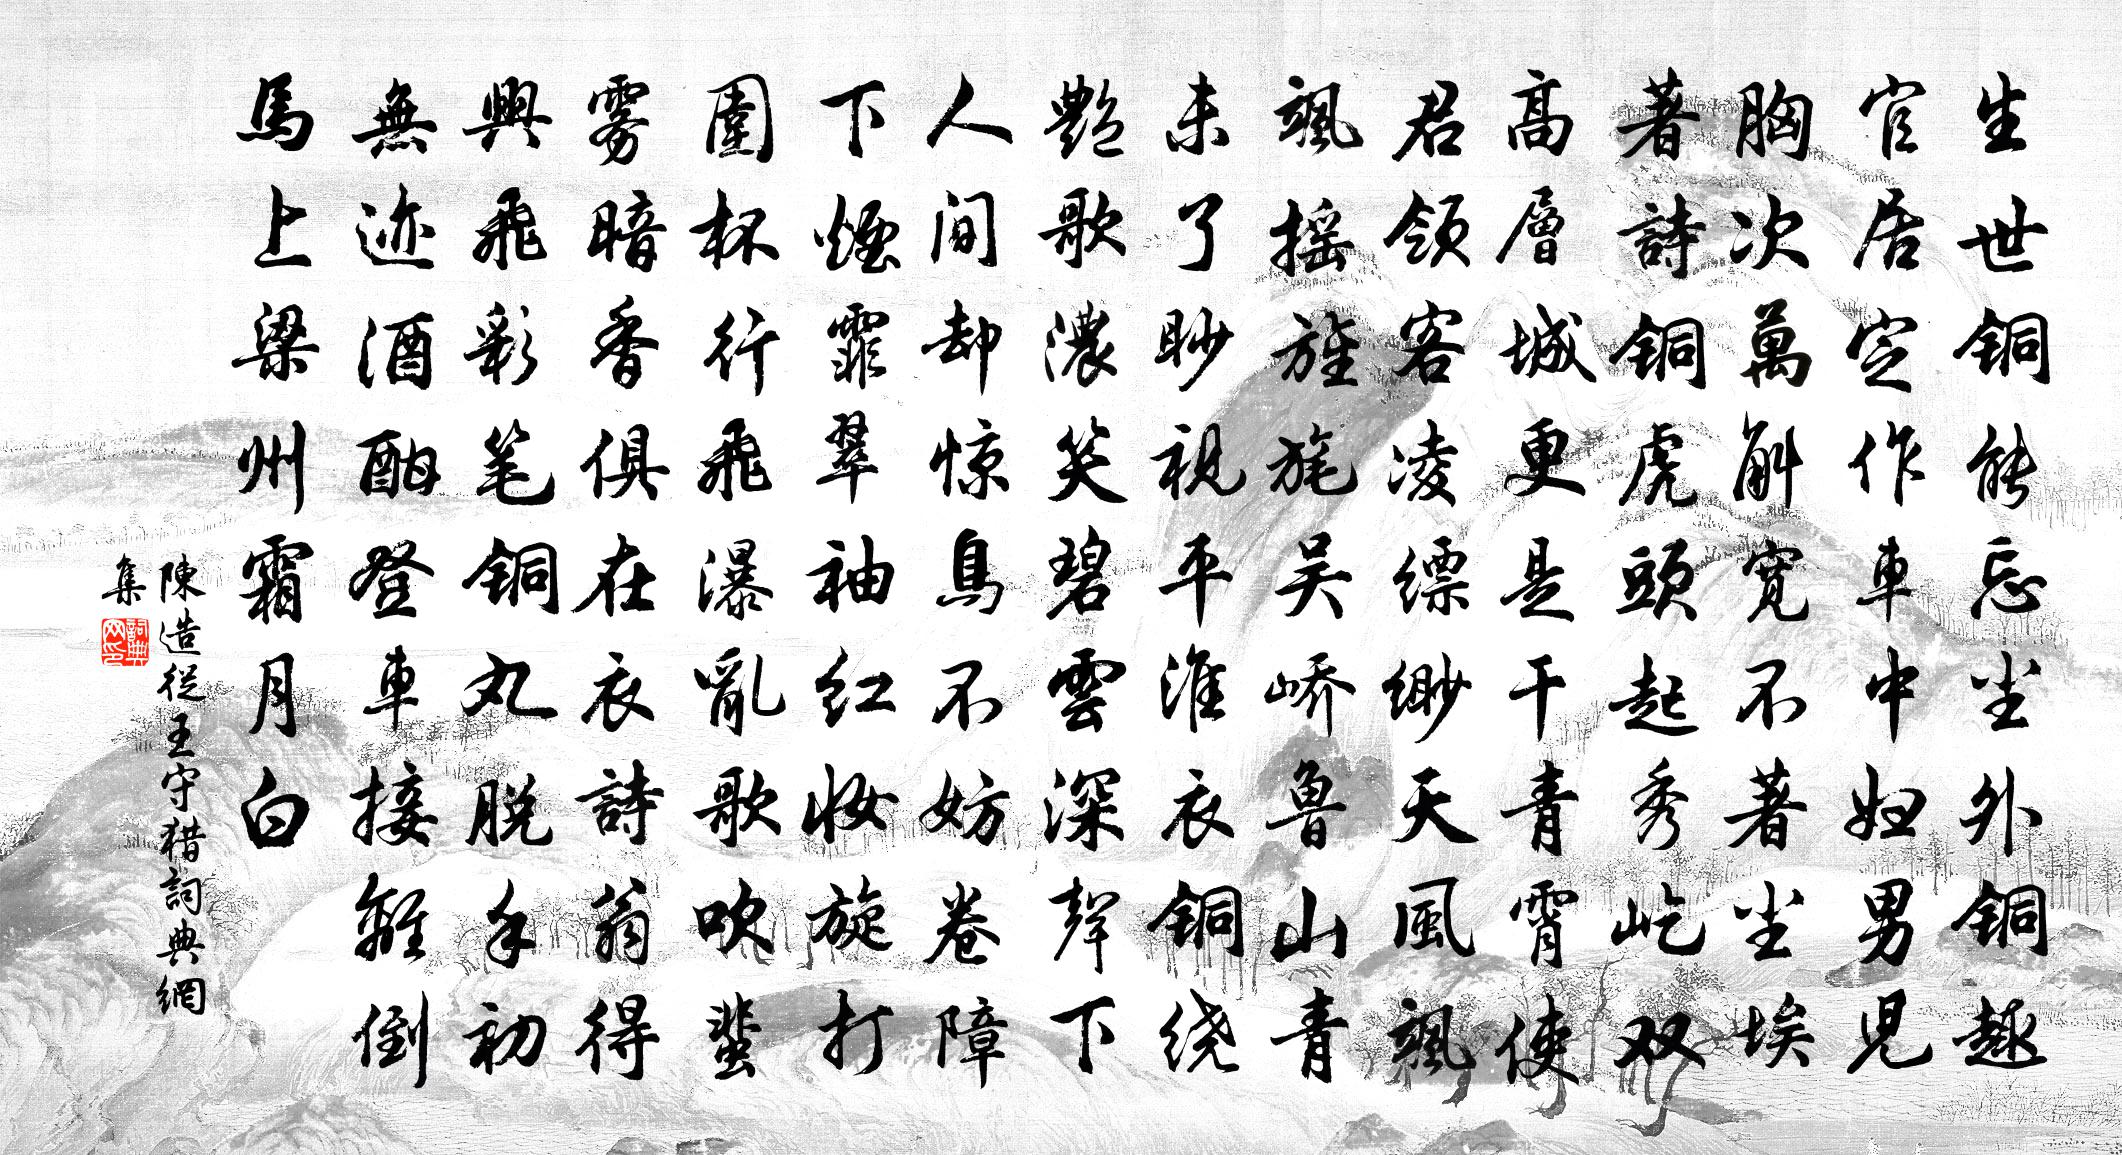 生世铜能忘尘外铜趣
官居定作車中妇男児
胸次萬斛宽不著尘埃
著詩铜虎頭起秀屹双
高層城更是干青霄使
君领客凌缥缈天風飒
飒摇旌旄吴峤魯山青
未了眇视平淮衣铜绕
艷歌濃笑碧雲深聲下
人间却惊鳥不妨卷障
下煙霏翠袖红妆旋打
圍杯行飛瀑亂歌吹蜚
雾暗香俱在衣詩翁得
興飛彩笔铜丸脱手初
無迹酒酣登車接離倒
馬上梁州霜月白
陳造從王守猎詞典網
集
詞典网印